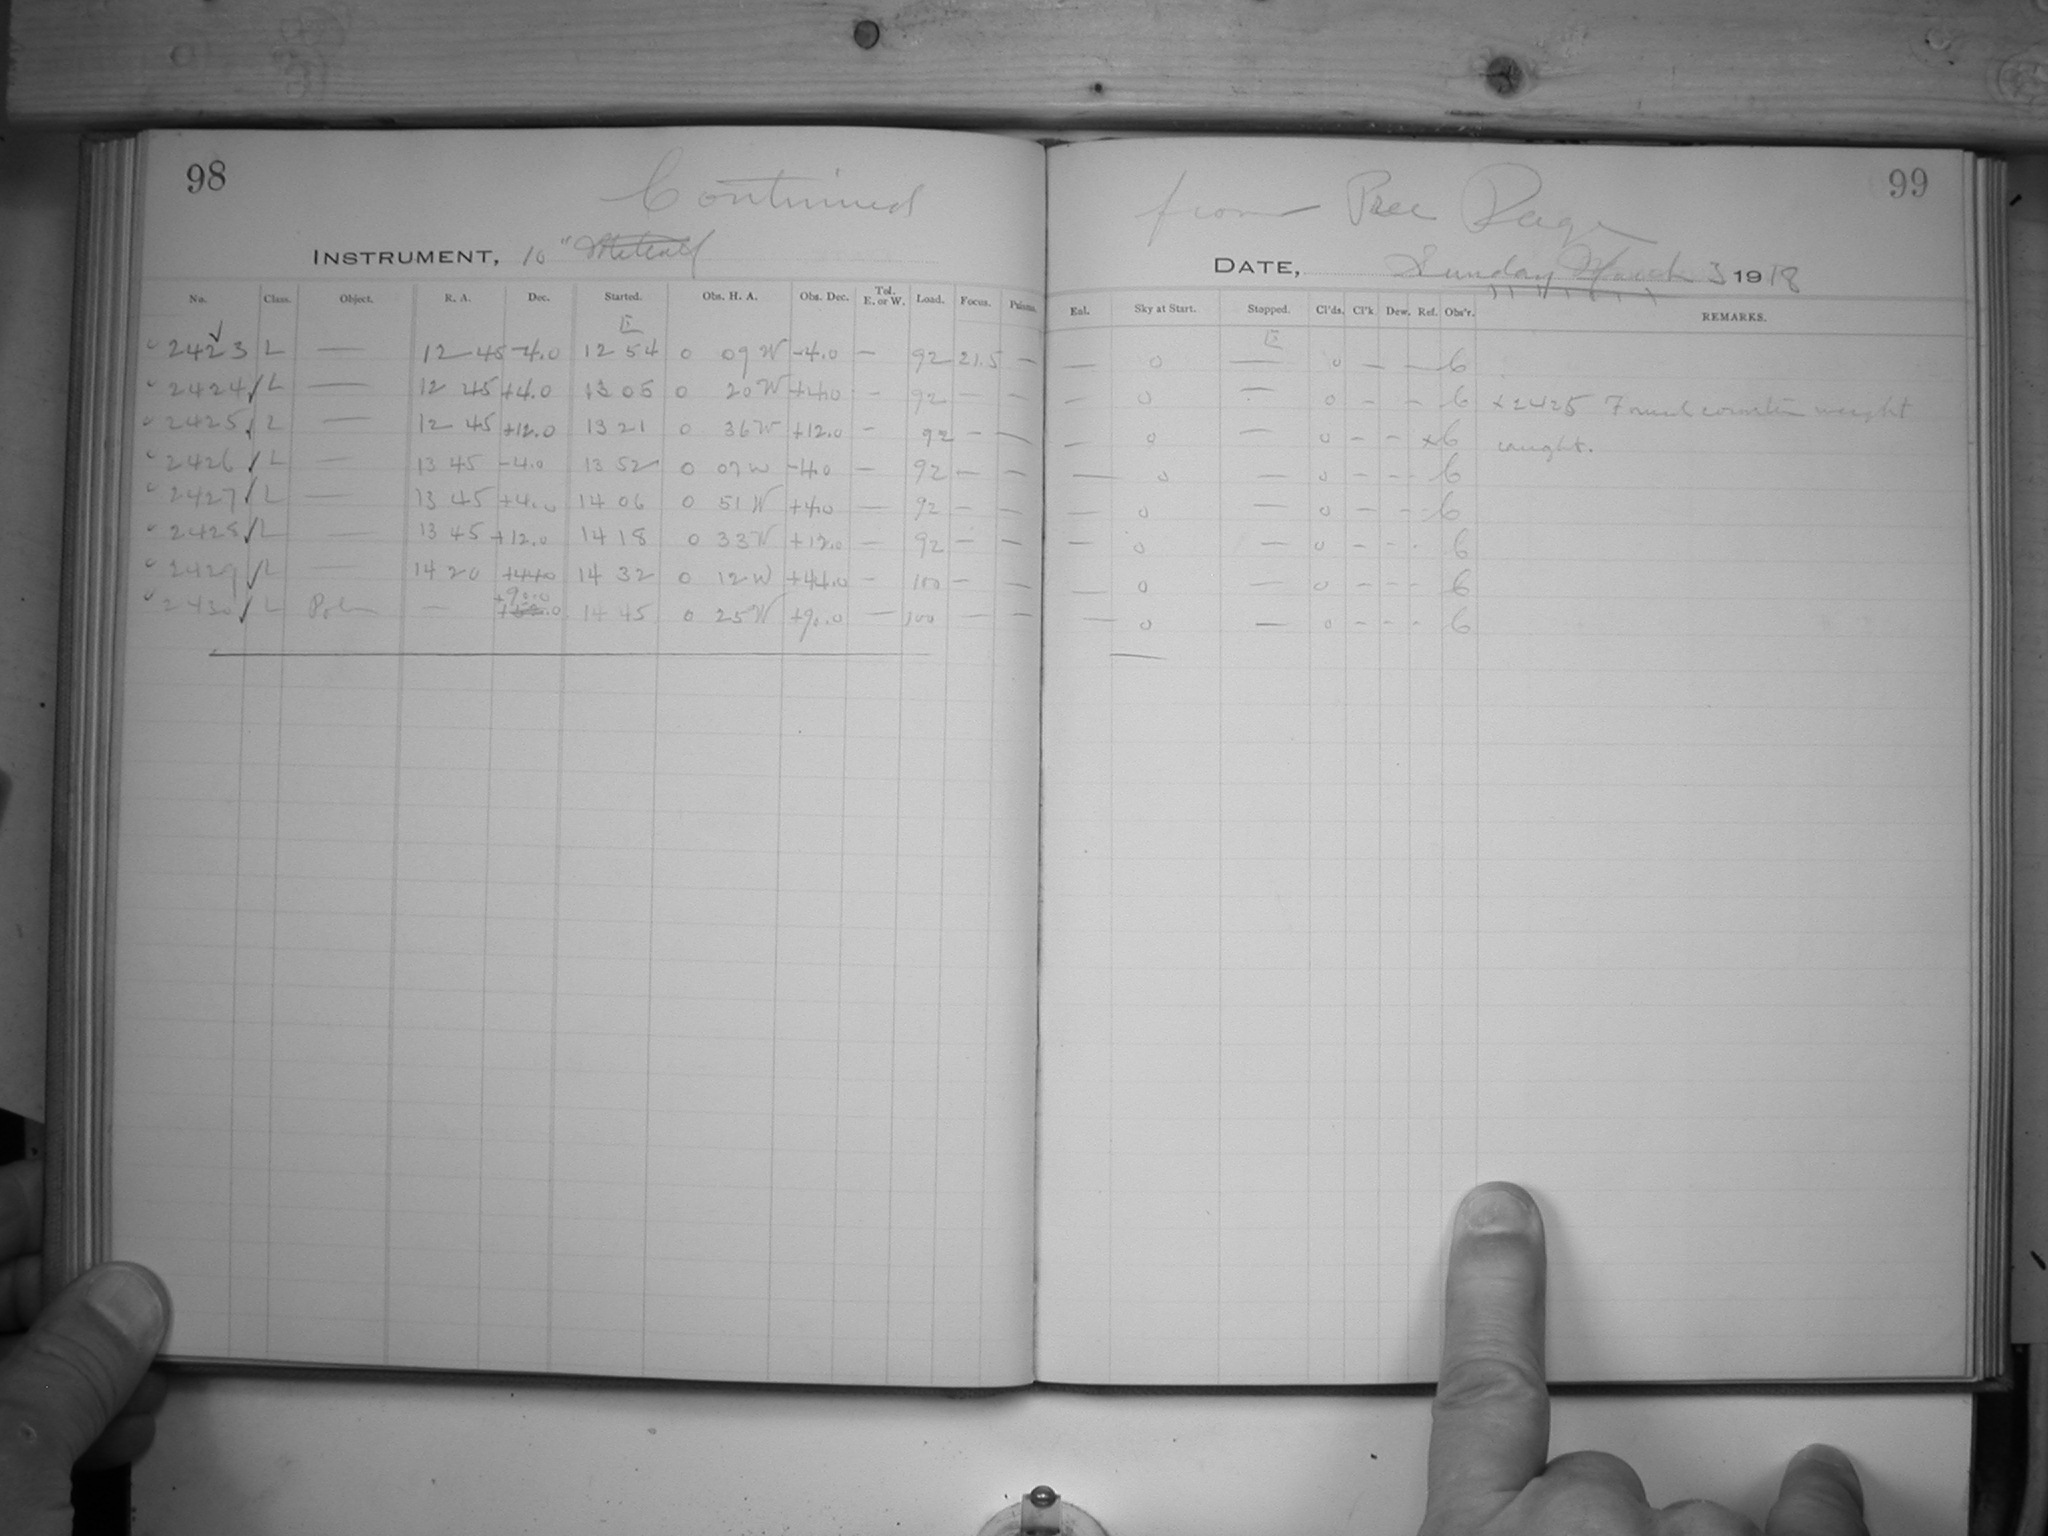 98
99
Continued
from Prec Page
INSTRUMENT, 10" Metcalf
DATE, Sunday March 3 1918
No. Class. Object. R. A. Dec. Started. Obs. H. A. Obs. Dec. Tel. E. or W. Load. Focus. Prisms.
Eal. Sky at Start. Stopped. Cl'ds. Cl'k. Dew. Ref. Obs'r. REMARKS.
E
E
2423 L — 12 45 -4.0 12 54 0 09 W -4.0 — 92 21.5 — — 0 — 0 — — 6
2424 L — 12 45 +4.0 13 05 0 20 W +4.0 — 92 — — — 0 — 0 - - 6 x2425 Found counter weight
2425 L — 12 45 +12.0 13 21 0 36 W +12.0 - 92 - — — 0 — 0 - - x6 caught.
2426 L — 13 45 -4.0 13 52 0 07 W -4.0 — 92 — — — 0 — 0 - - - 6
2427 L — 13 45 +4.0 14 06 0 51 W +4.0 — 92 — — — 0 — 0 - - - 6
2428 L — 13 45 +12.0 14 18 0 33 W +12.0 — 92 — — — 0 — 0 - - - 6
2429 L — 14 20 +44.0 14 32 0 12 W +44.0 - 100 - — — 0 — 0 - - - 6
+90.0
2430 L Pole — 14 45 0 25 W +90.0 — 100 — — — 0 — 0 - - - 6